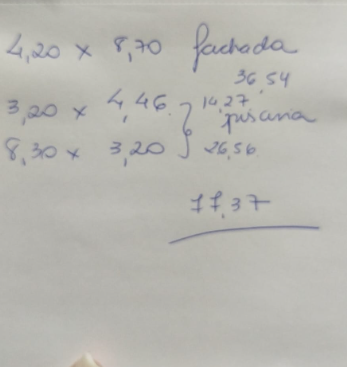 4,20 x 8,70 fachada
36,54
3,20 x 4,46 } 14,27
8,30 x 3,20 } 26,56
77,37